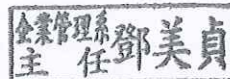 企業管理系
主任鄧美貞